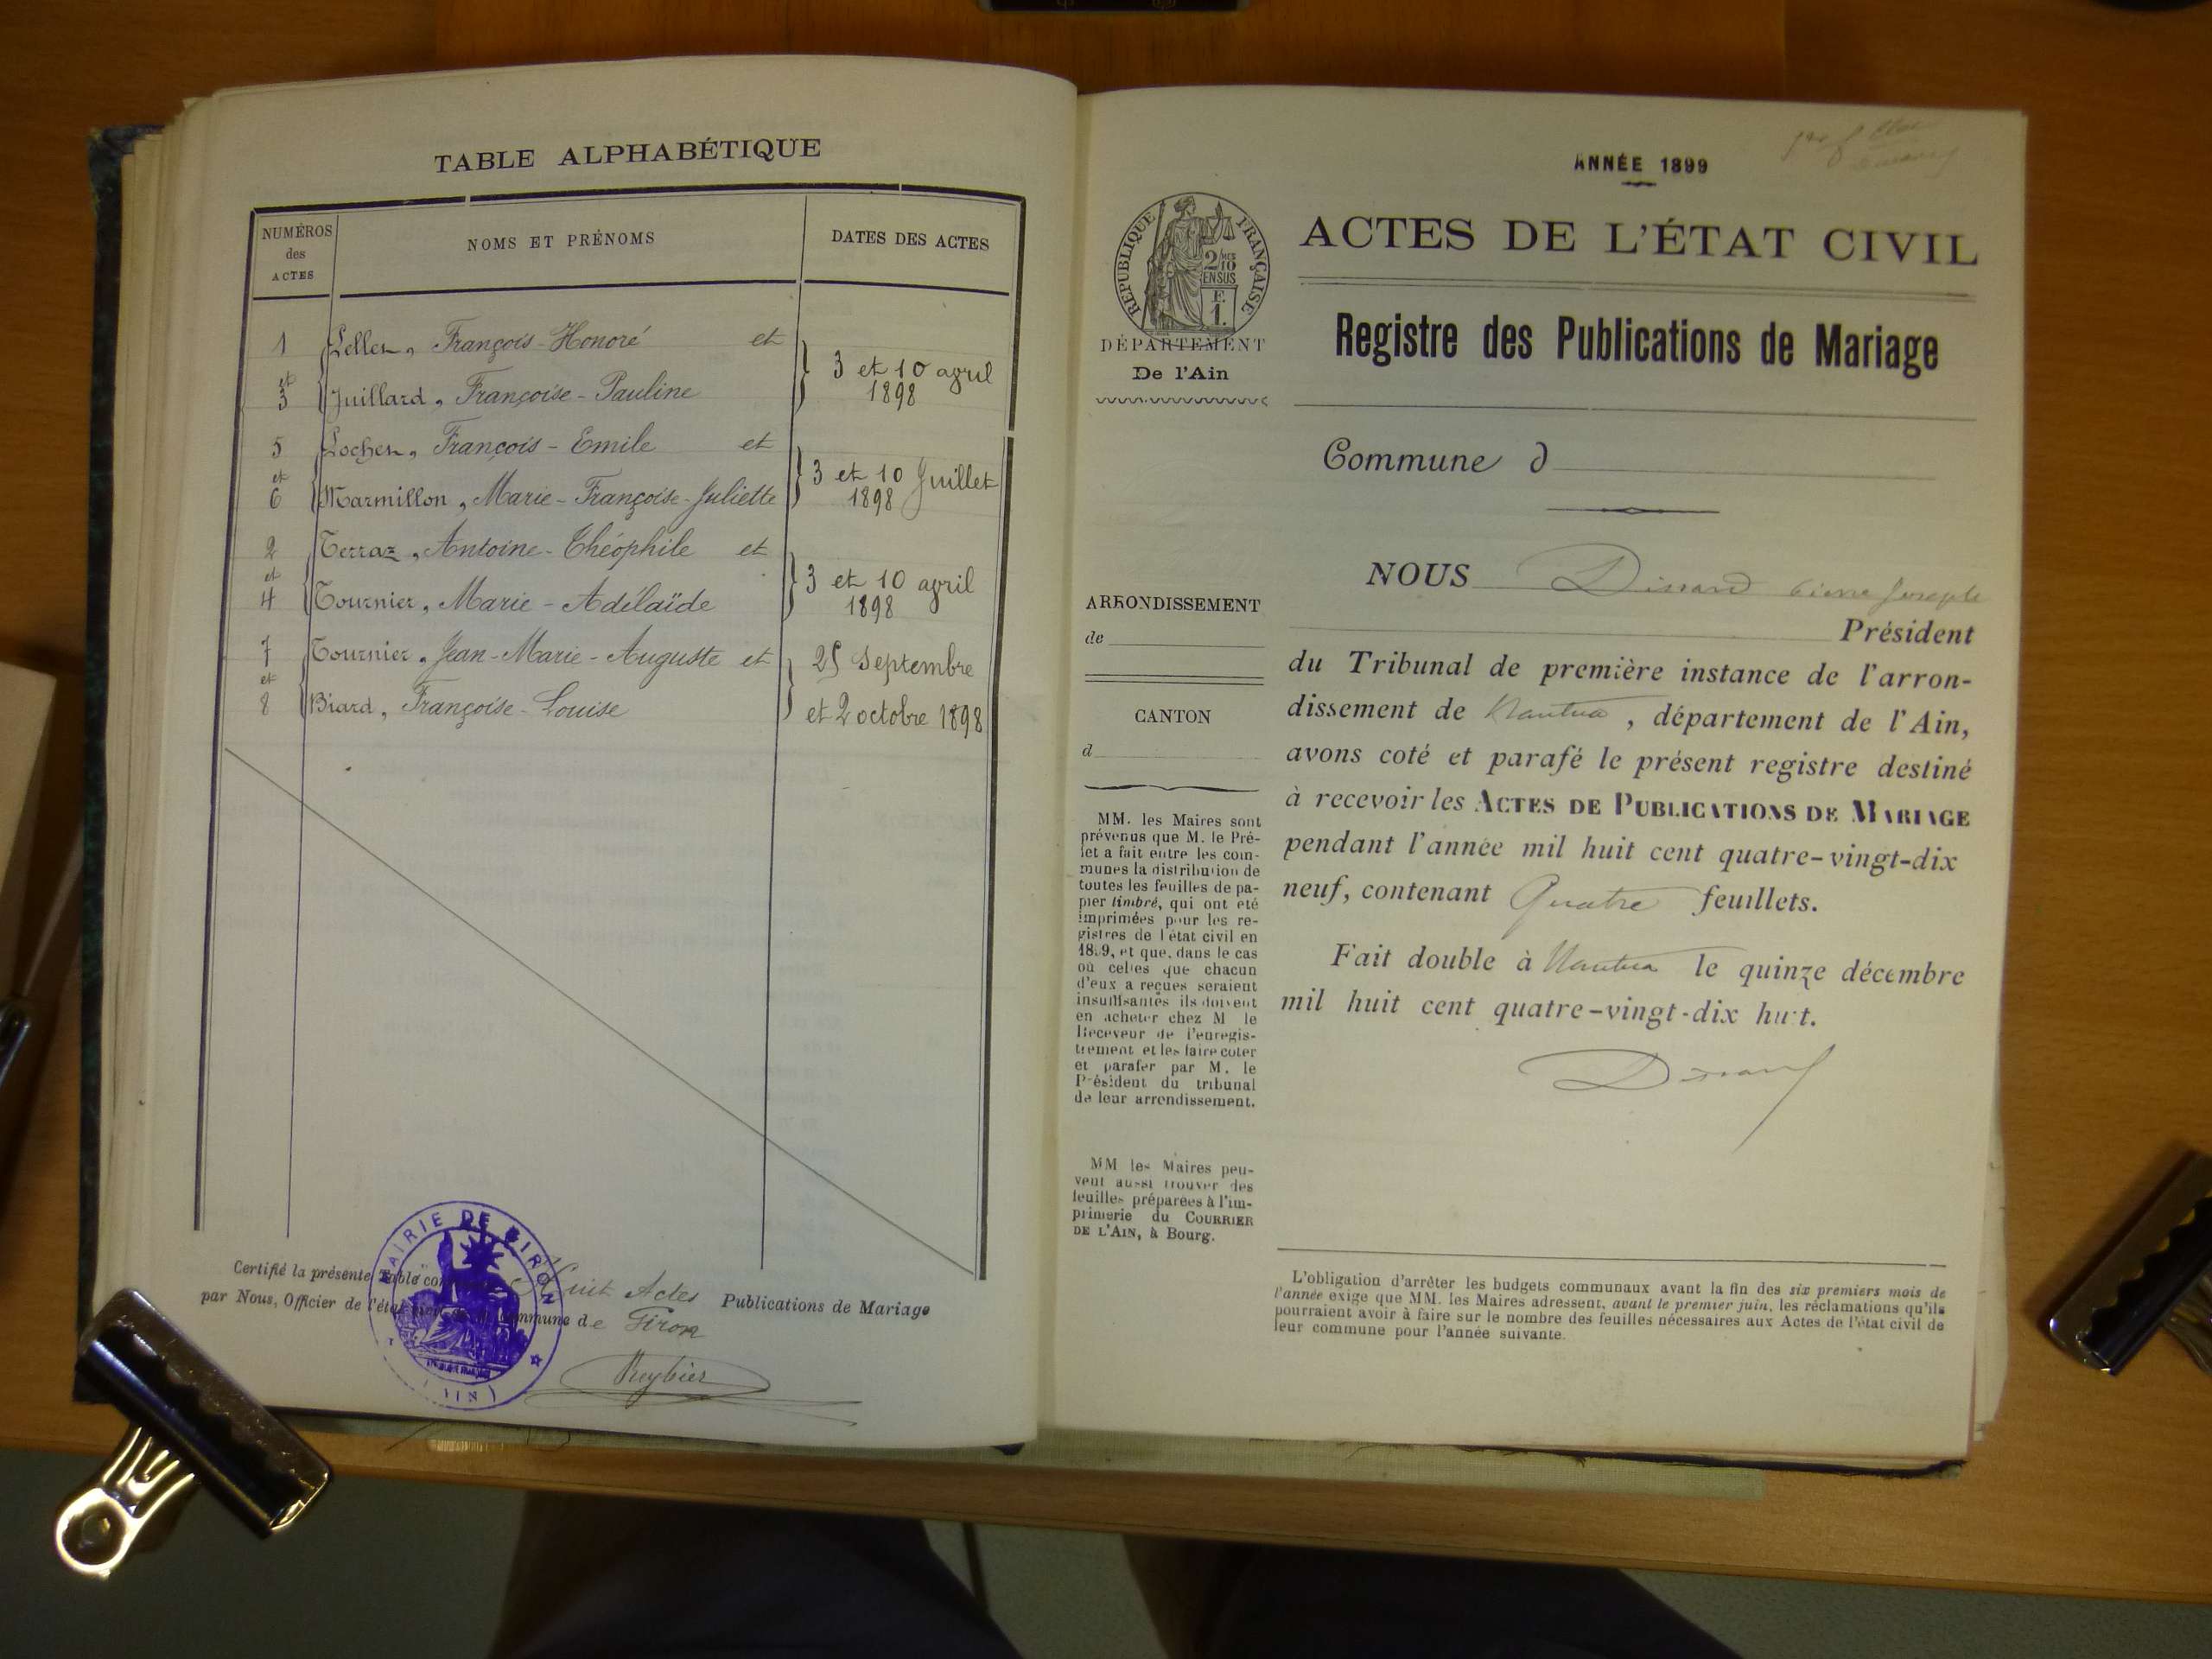 TABLE ALPHABÉTIQUE
NUMÉROS des ACTES
NOMS ET PRÉNOMS
DATES DES ACTES
1 Peller, François-Honoré et
et 3 Juillard, Françoise-Pauline
3 et 10 avril 1898
5 Locher, François-Emile et
et 6 Marmillon, Marie-Françoise-Juliette
3 et 10 Juillet 1898
2 Terraz, Antoine-Théophile et
et 4 Tournier, Marie-Adélaïde
3 et 10 avril 1898
7 Tournier, Jean-Marie-Auguste et
et 8 Biard, Françoise-Louise
25 Septembre
et 2 octobre 1898
Certifié la présente Table huit Actes Publications de Mariage
par Nous, Officier de l'état commune de Giron
Reybier
MAIRIE DE GIRON
(AIN)
ANNÉE 1899
ACTES DE L'ÉTAT CIVIL
Registre des Publications de Mariage
RÉPUBLIQUE FRANÇAISE
2/10MES
EN SUS
F.
1.
DÉPARTEMENT
De l'Ain
Commune d
ARRONDISSEMENT
de
CANTON
d
MM. les Maires sont
prévenus que M. le Pré-
fet a fait entre les com-
munes la distribution de
toutes les feuilles de pa-
pier timbré, qui ont été
imprimées pour les re-
gistres de l'état civil en
1899, et que, dans le cas
où celles que chacun
d'eux a reçues seraient
insuffisantes ils doivent
en acheter chez M le
Receveur de l'enregis-
trement et les faire coter
et parafer par M. le
Président du tribunal
de leur arrondissement.
MM les Maires peu-
vent aussi trouver des
feuilles préparées à l'im-
primerie du COURRIER
DE L'AIN, à Bourg.
NOUS Dissard Pierre Joseph
Président
du Tribunal de première instance de l'arron-
dissement de Nantua, département de l'Ain,
avons coté et parafé le présent registre destiné
à recevoir les ACTES DE PUBLICATIONS DE MARIAGE
pendant l'année mil huit cent quatre-vingt-dix
neuf, contenant Quatre feuillets.
Fait double à Nantua le quinze décembre
mil huit cent quatre-vingt-dix huit.
Dissard
L'obligation d'arrêter les budgets communaux avant la fin des six premiers mois de
l'année exige que MM. les Maires adressent, avant le premier juin, les réclamations qu'ils
pourraient avoir à faire sur le nombre des feuilles nécessaires aux Actes de l'état civil de
leur commune pour l'année suivante.